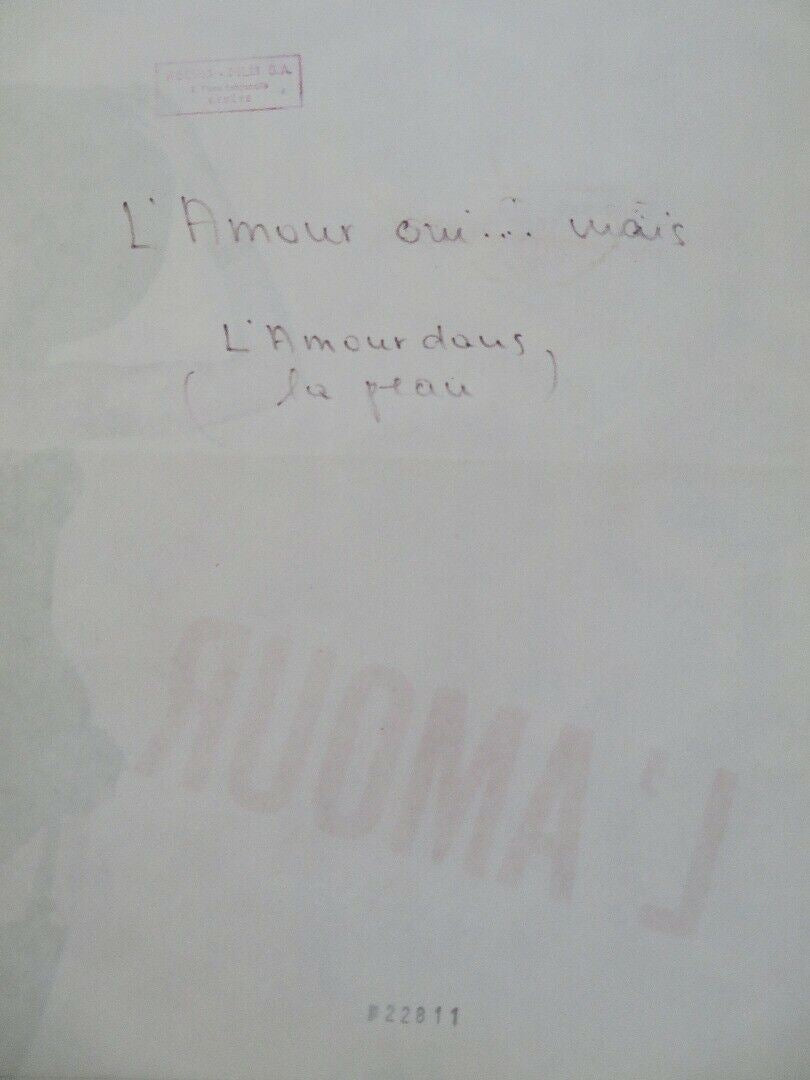 S.A.
L'Amour oui... mais
L'Amour dans
(la peau)
L'AMOUR
22811